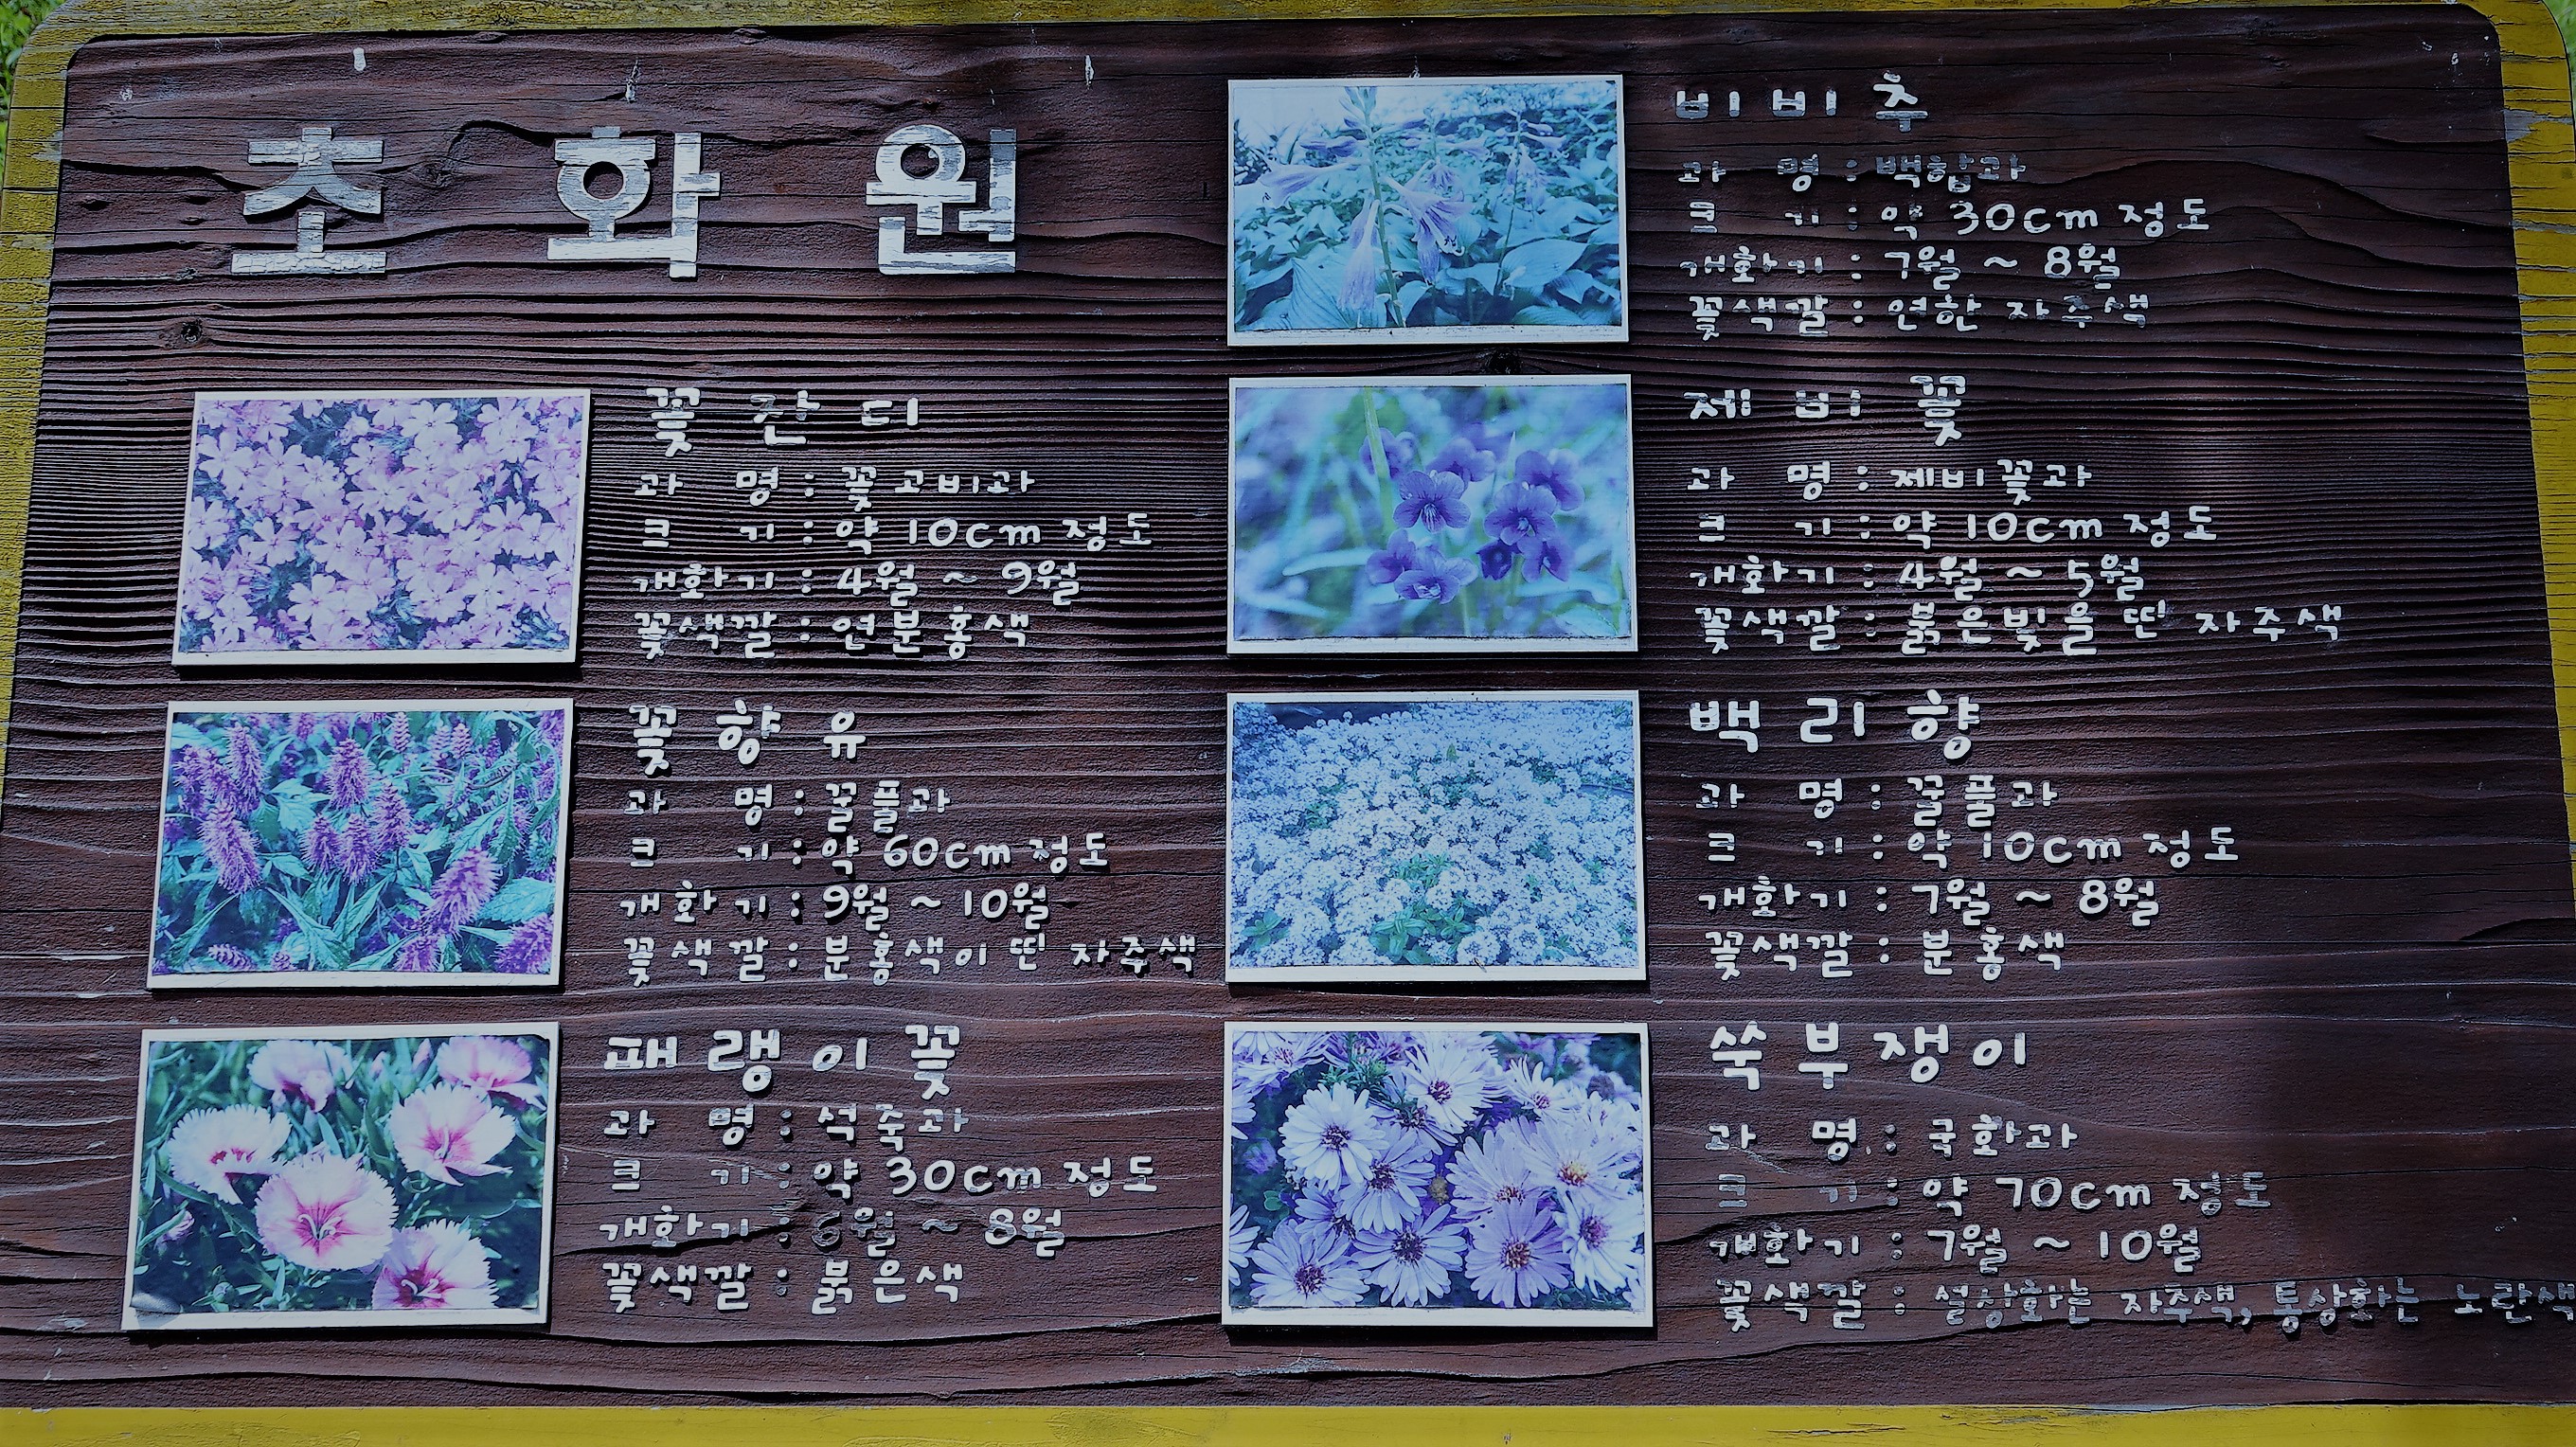 초화원
꽃잔디
과 명 : 꽃고비과
크 기 : 약 10cm 정도
개화기 : 4월 ~ 9월
꽃색깔 : 연분홍색
꽃향유
과 명 : 꿀풀과
크 기 : 약 60cm 정도
개화기 : 9월 ~ 10월
꽃색깔 : 분홍색이 띤 자주색
패랭이꽃
과 명 : 석죽과
크 기 : 약 30cm 정도
개화기 : 6월 ~ 8월
꽃색깔 : 붉은색
비비추
과 명 : 백합과
크 기 : 약 30cm 정도
개화기 : 7월 ~ 8월
꽃색깔 : 연한 자주색
제비꽃
과 명 : 제비꽃과
크 기 : 약 10cm 정도
개화기 : 4월 ~ 5월
꽃색깔 : 붉은빛을 띤 자주색
백리향
과 명 : 꿀풀과
크 기 : 약 10cm 정도
개화기 : 7월 ~ 8월
꽃색깔 : 분홍색
쑥부쟁이
과 명 : 국화과
크 기 : 약 70cm 정도
개화기 : 7월 ~ 10월
꽃색깔 : 설상화는 자주색, 통상화는 노란색